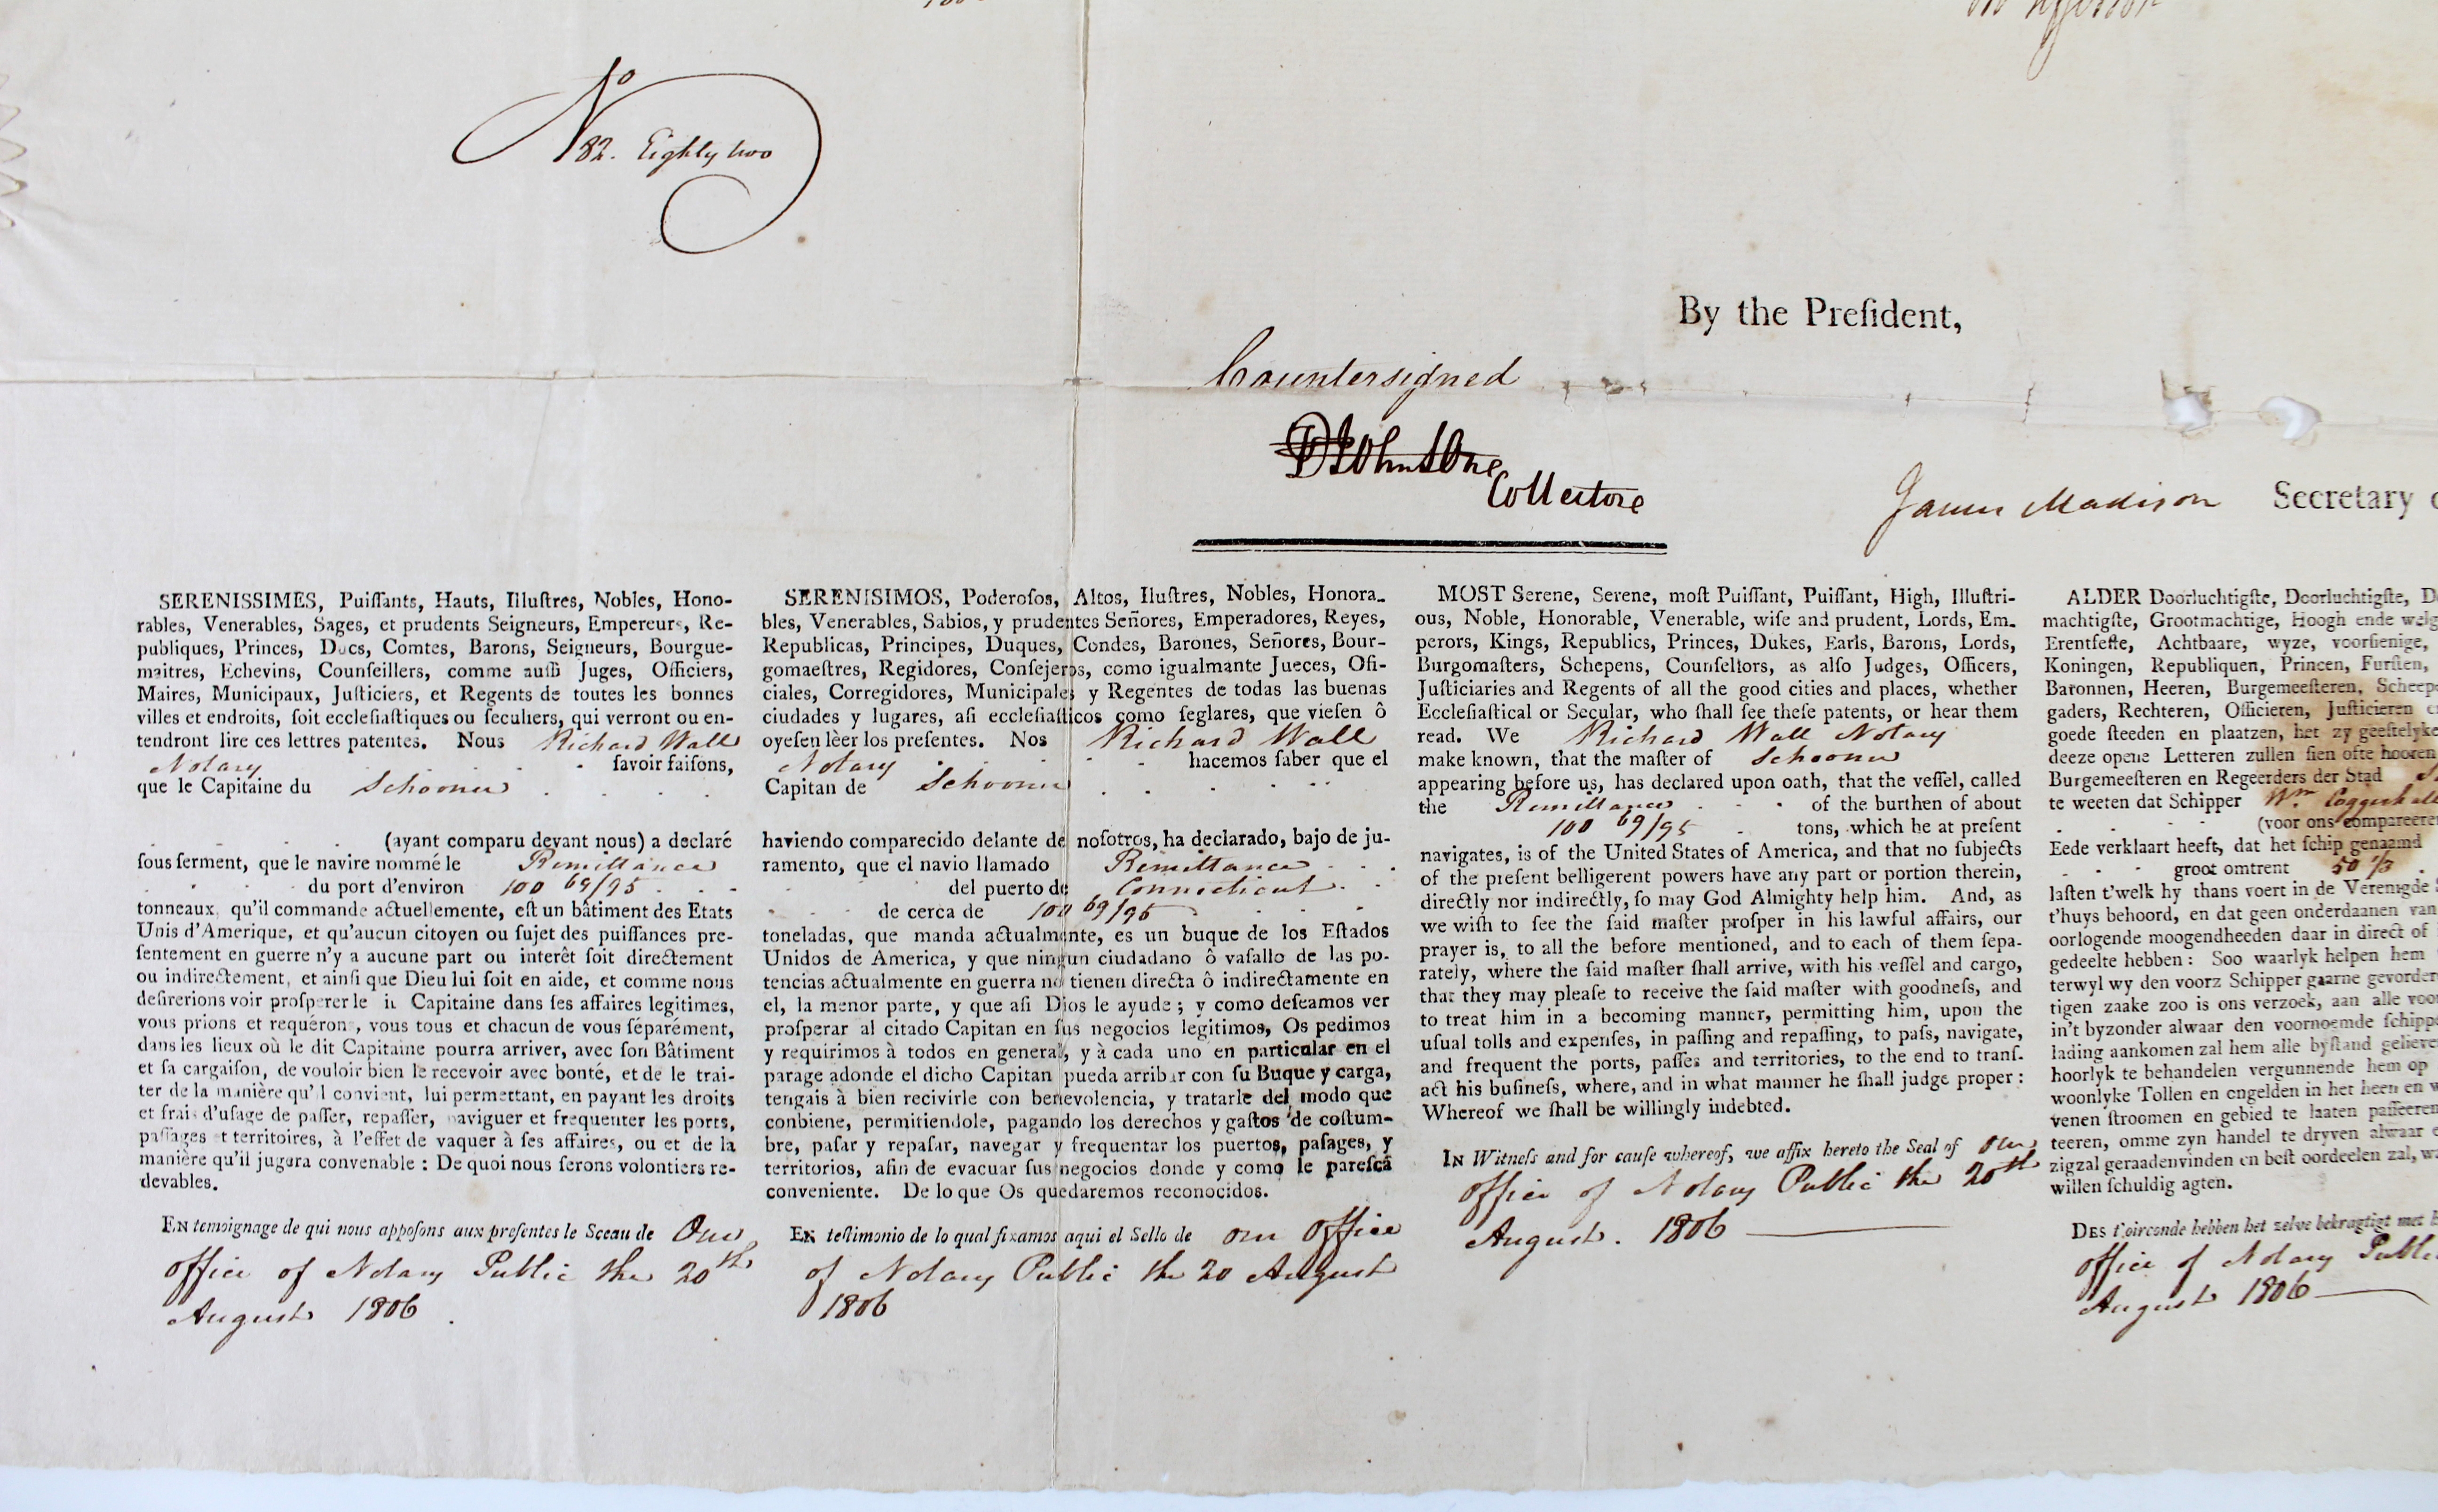 No
82. Eighty two
By the Preſident,
Countersigned
Johnstone
Collectore
James Madison Secretary
SERENISSIMES, Puiſſants, Hauts, Illuſtres, Nobles, Hono-
rables, Venerables, Sages, et prudents Seigneurs, Empereurs, Re-
publiques, Princes, Ducs, Comtes, Barons, Seigneurs, Bourgue-
maitres, Echevins, Counſeillers, comme auſſi Juges, Officiers,
Maires, Municipaux, Juſticiers, et Regents de toutes les bonnes
villes et endroits, ſoit eccleſiaſtiques ou ſeculiers, qui verront ou en-
tendront lire ces lettres patentes. Nous Richard Wall
Notary ſavoir faiſons,
que le Capitaine du Schooner
(ayant comparu devant nous) a declaré
ſous ſerment, que le navire nommé le Remittance
du port d'environ 100 69/95
tonneaux qu'il commande actuellemente, eſt un bâtiment des Etats
Unis d'Amerique, et qu'aucun citoyen ou ſujet des puiſſances pre-
ſentement en guerre n'y a aucune part ou interêt ſoit directement
ou indirectement, et ainſi que Dieu lui ſoit en aide, et comme nous
deſirerions voir proſperer le Capitaine dans ſes affaires legitimes,
vous prions et requérons, vous tous et chacun de vous ſéparément,
dans les lieux où le dit Capitaine pourra arriver, avec ſon Bâtiment
et ſa cargaiſon, de vouloir bien le recevoir avec bonté, et de le trai-
ter de la manière qu'il convient, lui permettant, en payant les droits
et frais d'uſage de paſſer, repaſſer, naviguer et frequenter les ports,
paſſages et territoires, à l'effet de vaquer à ſes affaires, ou et de la
manière qu'il jugera convenable : De quoi nous ſerons volontiers re-
devables.
EN temoignage de qui nous appoſons aux preſentes le Sceau de Our
office of Notary Public the 20th
August 1806
SERENISIMOS, Poderoſos, Altos, Iluſtres, Nobles, Honora-
bles, Venerables, Sabios, y prudentes Señores, Emperadores, Reyes,
Republicas, Principes, Duques, Condes, Barones, Señores, Bour-
gomaeſtres, Regidores, Conſejeros, como igualmante Jueces, Ofi-
ciales, Corregidores, Municipales y Regentes de todas las buenas
ciudades y lugares, aſi eccleſiaſticos como ſeglares, que vieſen ô
oyeſen lèer los preſentes. Nos Richard Wall
Notary hacemos ſaber que el
Capitan de Schooner
haviendo comparecido delante de noſotros, ha declarado, bajo de ju-
ramento, que el navio llamado Remittance
del puerto de Connecticut
de cerca de 100 69/95
toneladas, que manda actualmente, es un buque de los Eſtados
Unidos de America, y que ningun ciudadano ô vaſallo de las po-
tencias actualmente en guerra no tienen directa ô indirectamente en
el, la menor parte, y que aſi Dios le ayude ; y como deſeamos ver
proſperar al citado Capitan en ſus negocios legitimos, Os pedimos
y requirimos à todos en general, y à cada uno en particular en el
parage adonde el dicho Capitan pueda arribar con ſu Buque y carga,
tengais à bien recivirle con benevolencia, y tratarle del modo que
conbiene, permitiendole, pagando los derechos y gaſtos de coſtum-
bre, paſar y repaſar, navegar y frequentar los puertos, paſages, y
territorios, afin de evacuar ſus negocios donde y como le pareſcà
conveniente. De lo que Os quedaremos reconocidos.
EN teſtimonio de lo qual fixamos aqui el Sello de our Office
of Notary Public the 20 August
1806
MOST Serene, Serene, moſt Puiſſant, Puiſſant, High, Illuſtri-
ous, Noble, Honorable, Venerable, wiſe and prudent, Lords, Em-
perors, Kings, Republics, Princes, Dukes, Earls, Barons, Lords,
Burgomaſters, Schepens, Counſellors, as alſo Judges, Officers,
Juſticiaries and Regents of all the good cities and places, whether
Eccleſiaſtical or Secular, who ſhall ſee theſe patents, or hear them
read. We Richard Wall Notary
make known, that the maſter of Schooner
appearing before us, has declared upon oath, that the veſſel, called
the Remittance of the burthen of about
100 69/95 tons, which he at preſent
navigates, is of the United States of America, and that no ſubjects
of the preſent belligerent powers have any part or portion therein,
directly nor indirectly, ſo may God Almighty help him. And, as
we wiſh to ſee the ſaid maſter proſper in his lawful affairs, our
prayer is, to all the before mentioned, and to each of them ſepa-
rately, where the ſaid maſter ſhall arrive, with his veſſel and cargo,
that they may pleaſe to receive the ſaid maſter with goodneſs, and
to treat him in a becoming manner, permitting him, upon the
uſual tolls and expenſes, in paſſing and repaſſing, to paſs, navigate,
and frequent the ports, paſſes and territories, to the end to tranſ-
act his buſineſs, where, and in what manner he ſhall judge proper :
Whereof we ſhall be willingly indebted.
IN Witneſs and for cauſe whereof, we affix hereto the Seal of Our
office of Notary Public the 20th
August. 1806
ALDER Doorluchtigſte, Doorluchtigſte,
machtigſte, Grootmachtige, Hoogh ende
Erentfeſte, Achtbaare, wyze, voorſienige,
Koningen, Republiquen, Princen, Furſten,
Baronnen, Heeren, Burgemeeſteren,
gaders, Rechteren, Officieren, Juſticieren
goede ſteeden en plaatzen, het zy geeſtelyke
deeze opene Letteren zullen ſien ofte hooren
Burgemeeſteren en Regeerders der Stad
te weeten dat Schipper Wm Coggeshall
(voor ons
Eede verklaart heeft, dat het ſchip genaamd
groot omtrent 50 1/3
laſten t'welk hy thans voert in de Verenigde
t'huys behoord, en dat geen onderdaanen van
oorlogende moogendheeden daar in direct of
gedeelte hebben : Soo waarlyk helpen hem
terwyl wy den voorz Schipper gaarne
tigen zaake zoo is ons verzoek, aan alle
in't byzonder alwaar den voornoemde
lading aankomen zal hem alle byſtand
hoorlyk te behandelen vergunnende hem op
woonlyke Tollen en ongelden in het heen en
venen ſtroomen en gebied te laaten
teeren, omme zyn handel te dryven alwaar
zigzal geraadenvinden en beſt oordeelen zal,
willen ſchuldig agten.
DES t'oirconde hebben het zelve bekragtigt met
office of Notary Public
August 1806